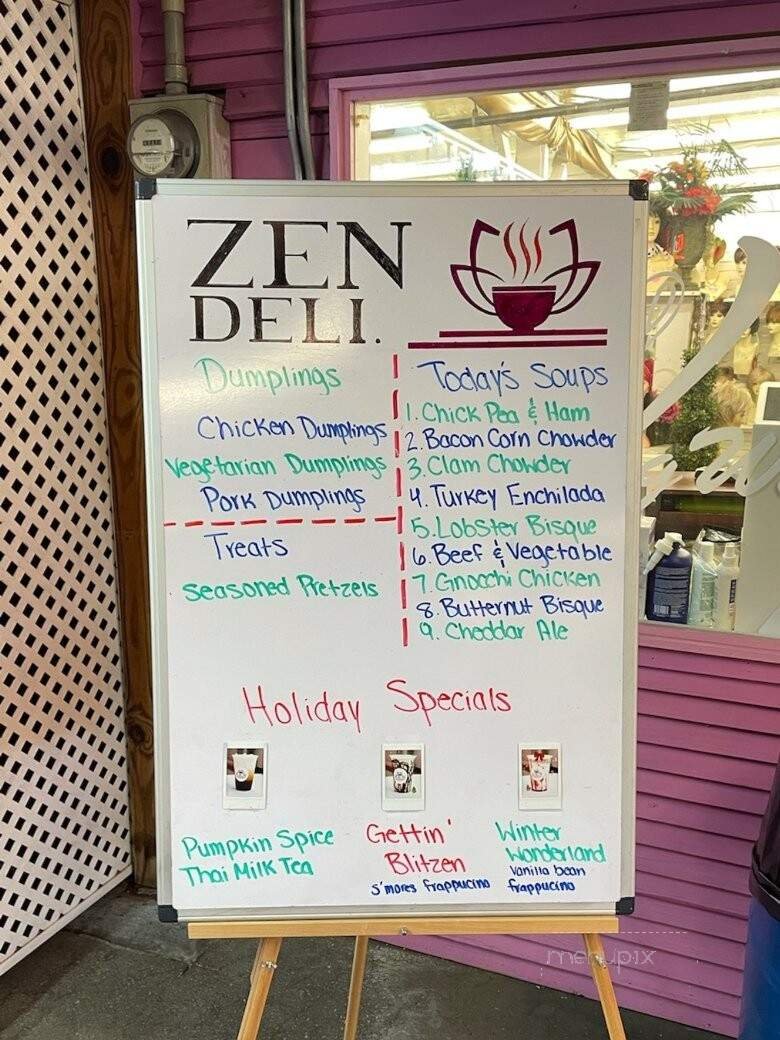 ZEN
DELI.
Dumplings
Chicken Dumplings
Vegetarian Dumplings
Pork Dumplings
Treats
Seasoned Pretzels
Today's Soups
1. Chick Pea & Ham
2. Bacon Corn Chowder
3. Clam Chowder
4. Turkey Enchilada
5. Lobster Bisque
6. Beef & Vegetable
7. Gnocchi Chicken
8. Butternut Bisque
9. Cheddar Ale
Holiday Specials
Pumpkin Spice
Thai Milk Tea
Gettin'
Blitzen
S'mores frappucino
Winter
Wonderland
Vanilla bean
frappucino
menupix